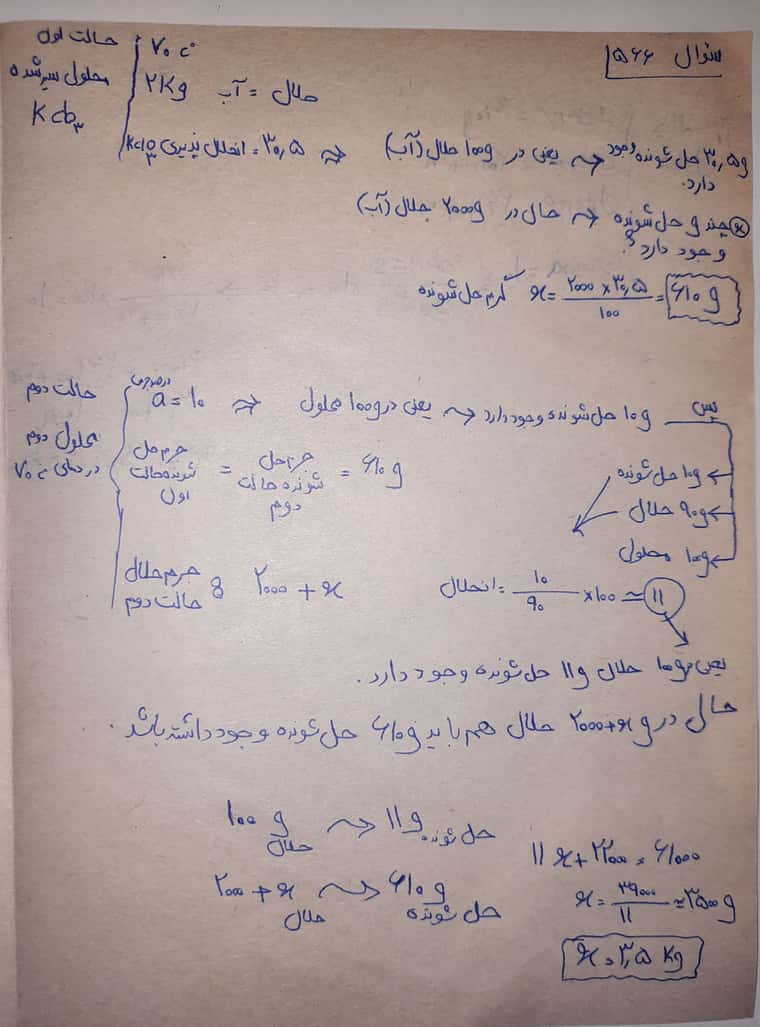 سئوال ۵۶۶
حالت اول
محلول سیر شده
KClO₃
۷۰ °c
۲Kg حلال = آب
KClO₃ انحلال پذیری = ۳۰,۵ ⇒ یعنی در ۱۰۰g حلال (آب) ⇝ ۳۰,۵g حل شونده وجود دارد.
حال در ۲۰۰۰g حلال (آب) ⇝ چند g حل شونده وجود دارد؟
گرم حل شونده x = ۲۰۰۰ × ۳۰,۵ / ۱۰۰ = ۶۱۰ g
حالت دوم
محلول دوم
در دمای ۷۰ °c
درصد جرمی
a = ۱۰ ⇒ یعنی در ۱۰۰g محلول ⇝ ۱۰g حل شونده وجود دارد پس
جرم حل شونده حالت اول = جرم حل شونده حالت دوم = ۶۱۰ g
۱۰g حل شونده
۹۰g حلال
۱۰۰g محلول
جرم حلال حالت دوم : ۲۰۰۰ + x
انحلال = ۱۰ / ۹۰ × ۱۰۰ ≃ ۱۱
یعنی ۱۰۰g حلال ۱۱g حل شونده وجود دارد.
حال در ۲۰۰۰+x g حلال هم باید ۶۱۰g حل شونده وجود داشته باشد.
۱۰۰ g حلال ⇝ ۱۱g حل شونده
۲۰۰۰ + x حلال ⇝ ۶۱۰g حل شونده
۱۱x + ۲۲۰۰۰ = ۶۱۰۰۰
x = ۳۹۰۰۰ / ۱۱ ≃ ۳۵۰۰ g
x = ۳,۵ Kg